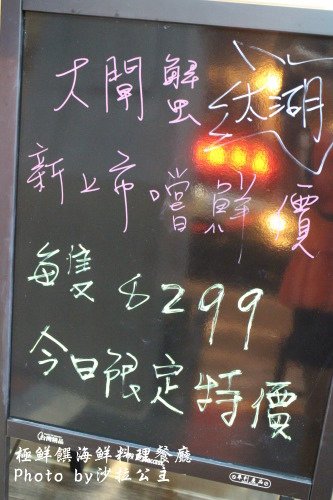 大閘蟹 太湖
新上市嚐鮮價
每隻 $299
今日限定特價
極鮮饌海鮮料理餐廳
Photo by沙拉公主